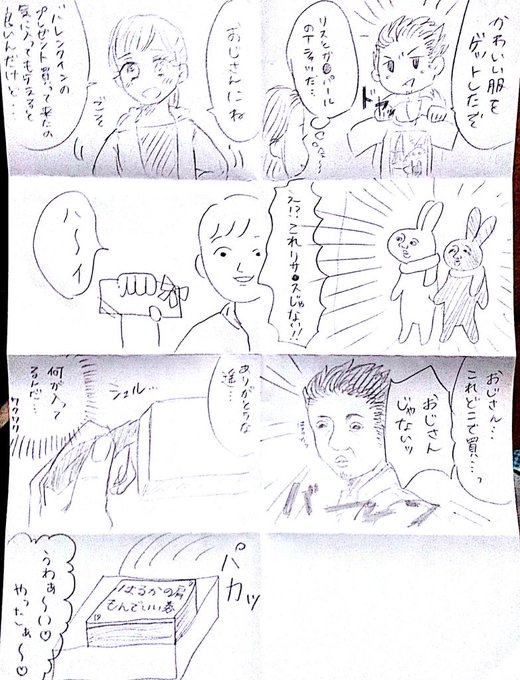 かわいい服を
ゲットしたぞ
ドヤッ
リスシガ●パル
のTシャツだ…
え!?これリサ●スじゃない!!
おじさん…
これどこで買…っ
おじさん
じゃないッ
おじさんにね
バレンタインの
プレゼント買って来たの
気に入ってもらえると
良いんだけど…
ごそ
ハ〜イ
ありがとうな
遥…
シュル…
何が入って
るんだ…
ワクワク
パカッ
はるかの肩
もんでいい券
うわぁ〜♡
やったぁ〜♡